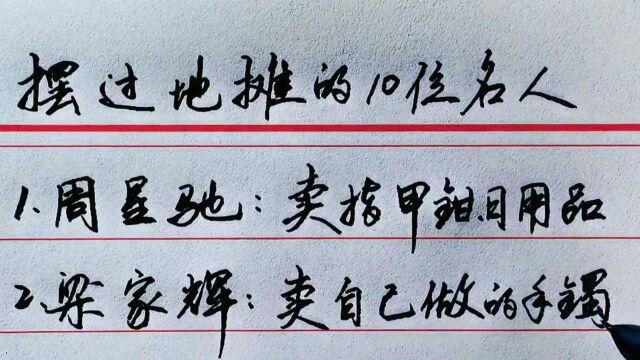 摆过地摊的10位名人
1、周星驰：卖指甲钳日用品
2、梁家辉：卖自己做的手镯